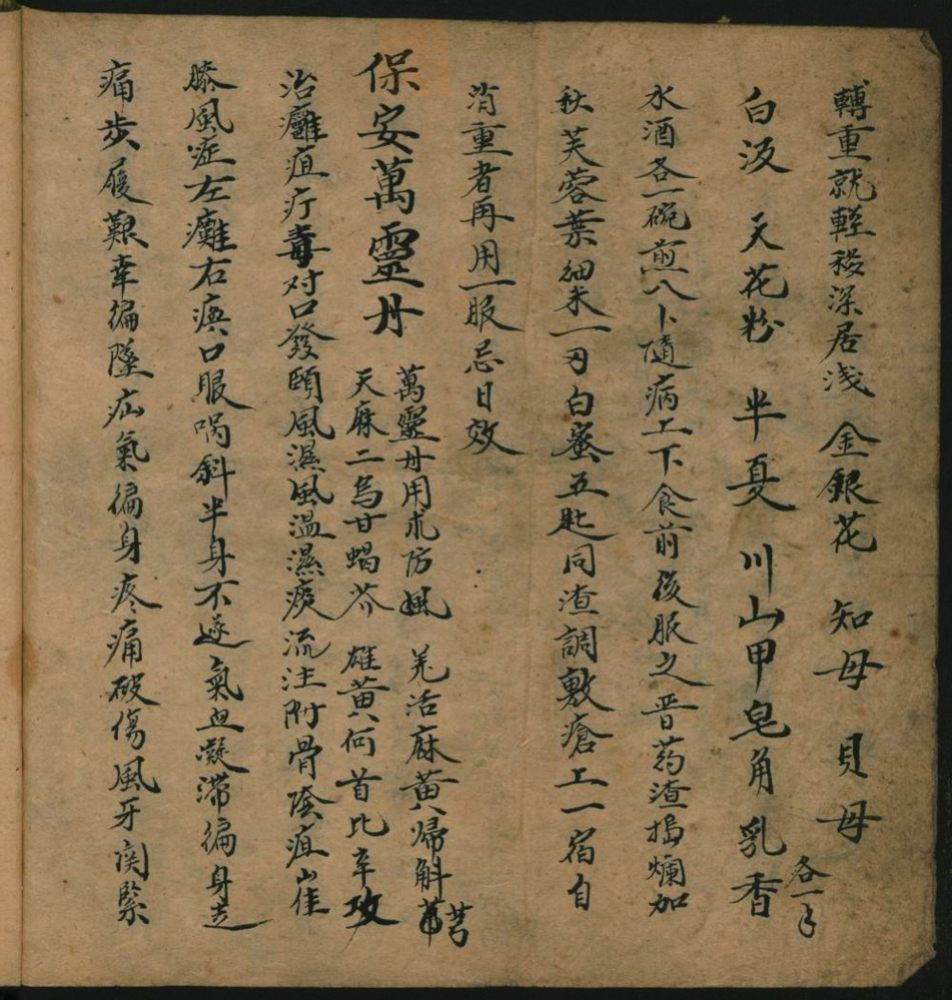 轉重就輕移深居淺 金銀花 知母 貝母
白汲 天花粉 半夏 川山甲 皂角 乳香 各一
水酒各一碗煎八卜隨病上下食前後服之晋药渣搗爛加
秋芙蓉葉細末一刃白蜜五匙同渣調敷瘡上一宿自
消重者再用一服忌日效
保安萬靈丹
萬靈丹用朮防風 羌活麻黄歸斛芎
天麻二烏甘蝎芥 雄黄何首比辛攻
治癰疽疔毒对口發頤風濕風温濕痰流注附骨陰疽
膝風症左癱右瘓口眼喎斜半身不遂氣血凝滞徧身走
痛步履艱辛徧墜疝氣徧身疼痛破傷風牙関緊